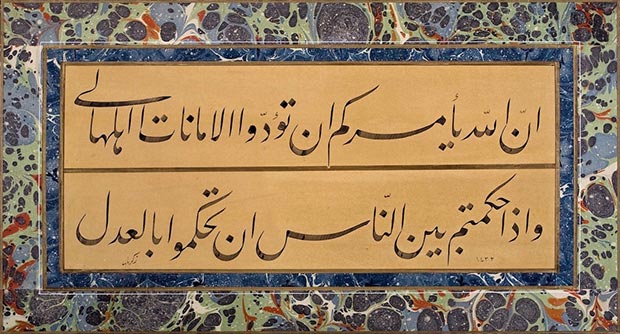 انّ الله يأمركم ان تؤدّوا الامانات الى اهلها
واذا حكمتم بين النّاس ان تحكموا بالعدل